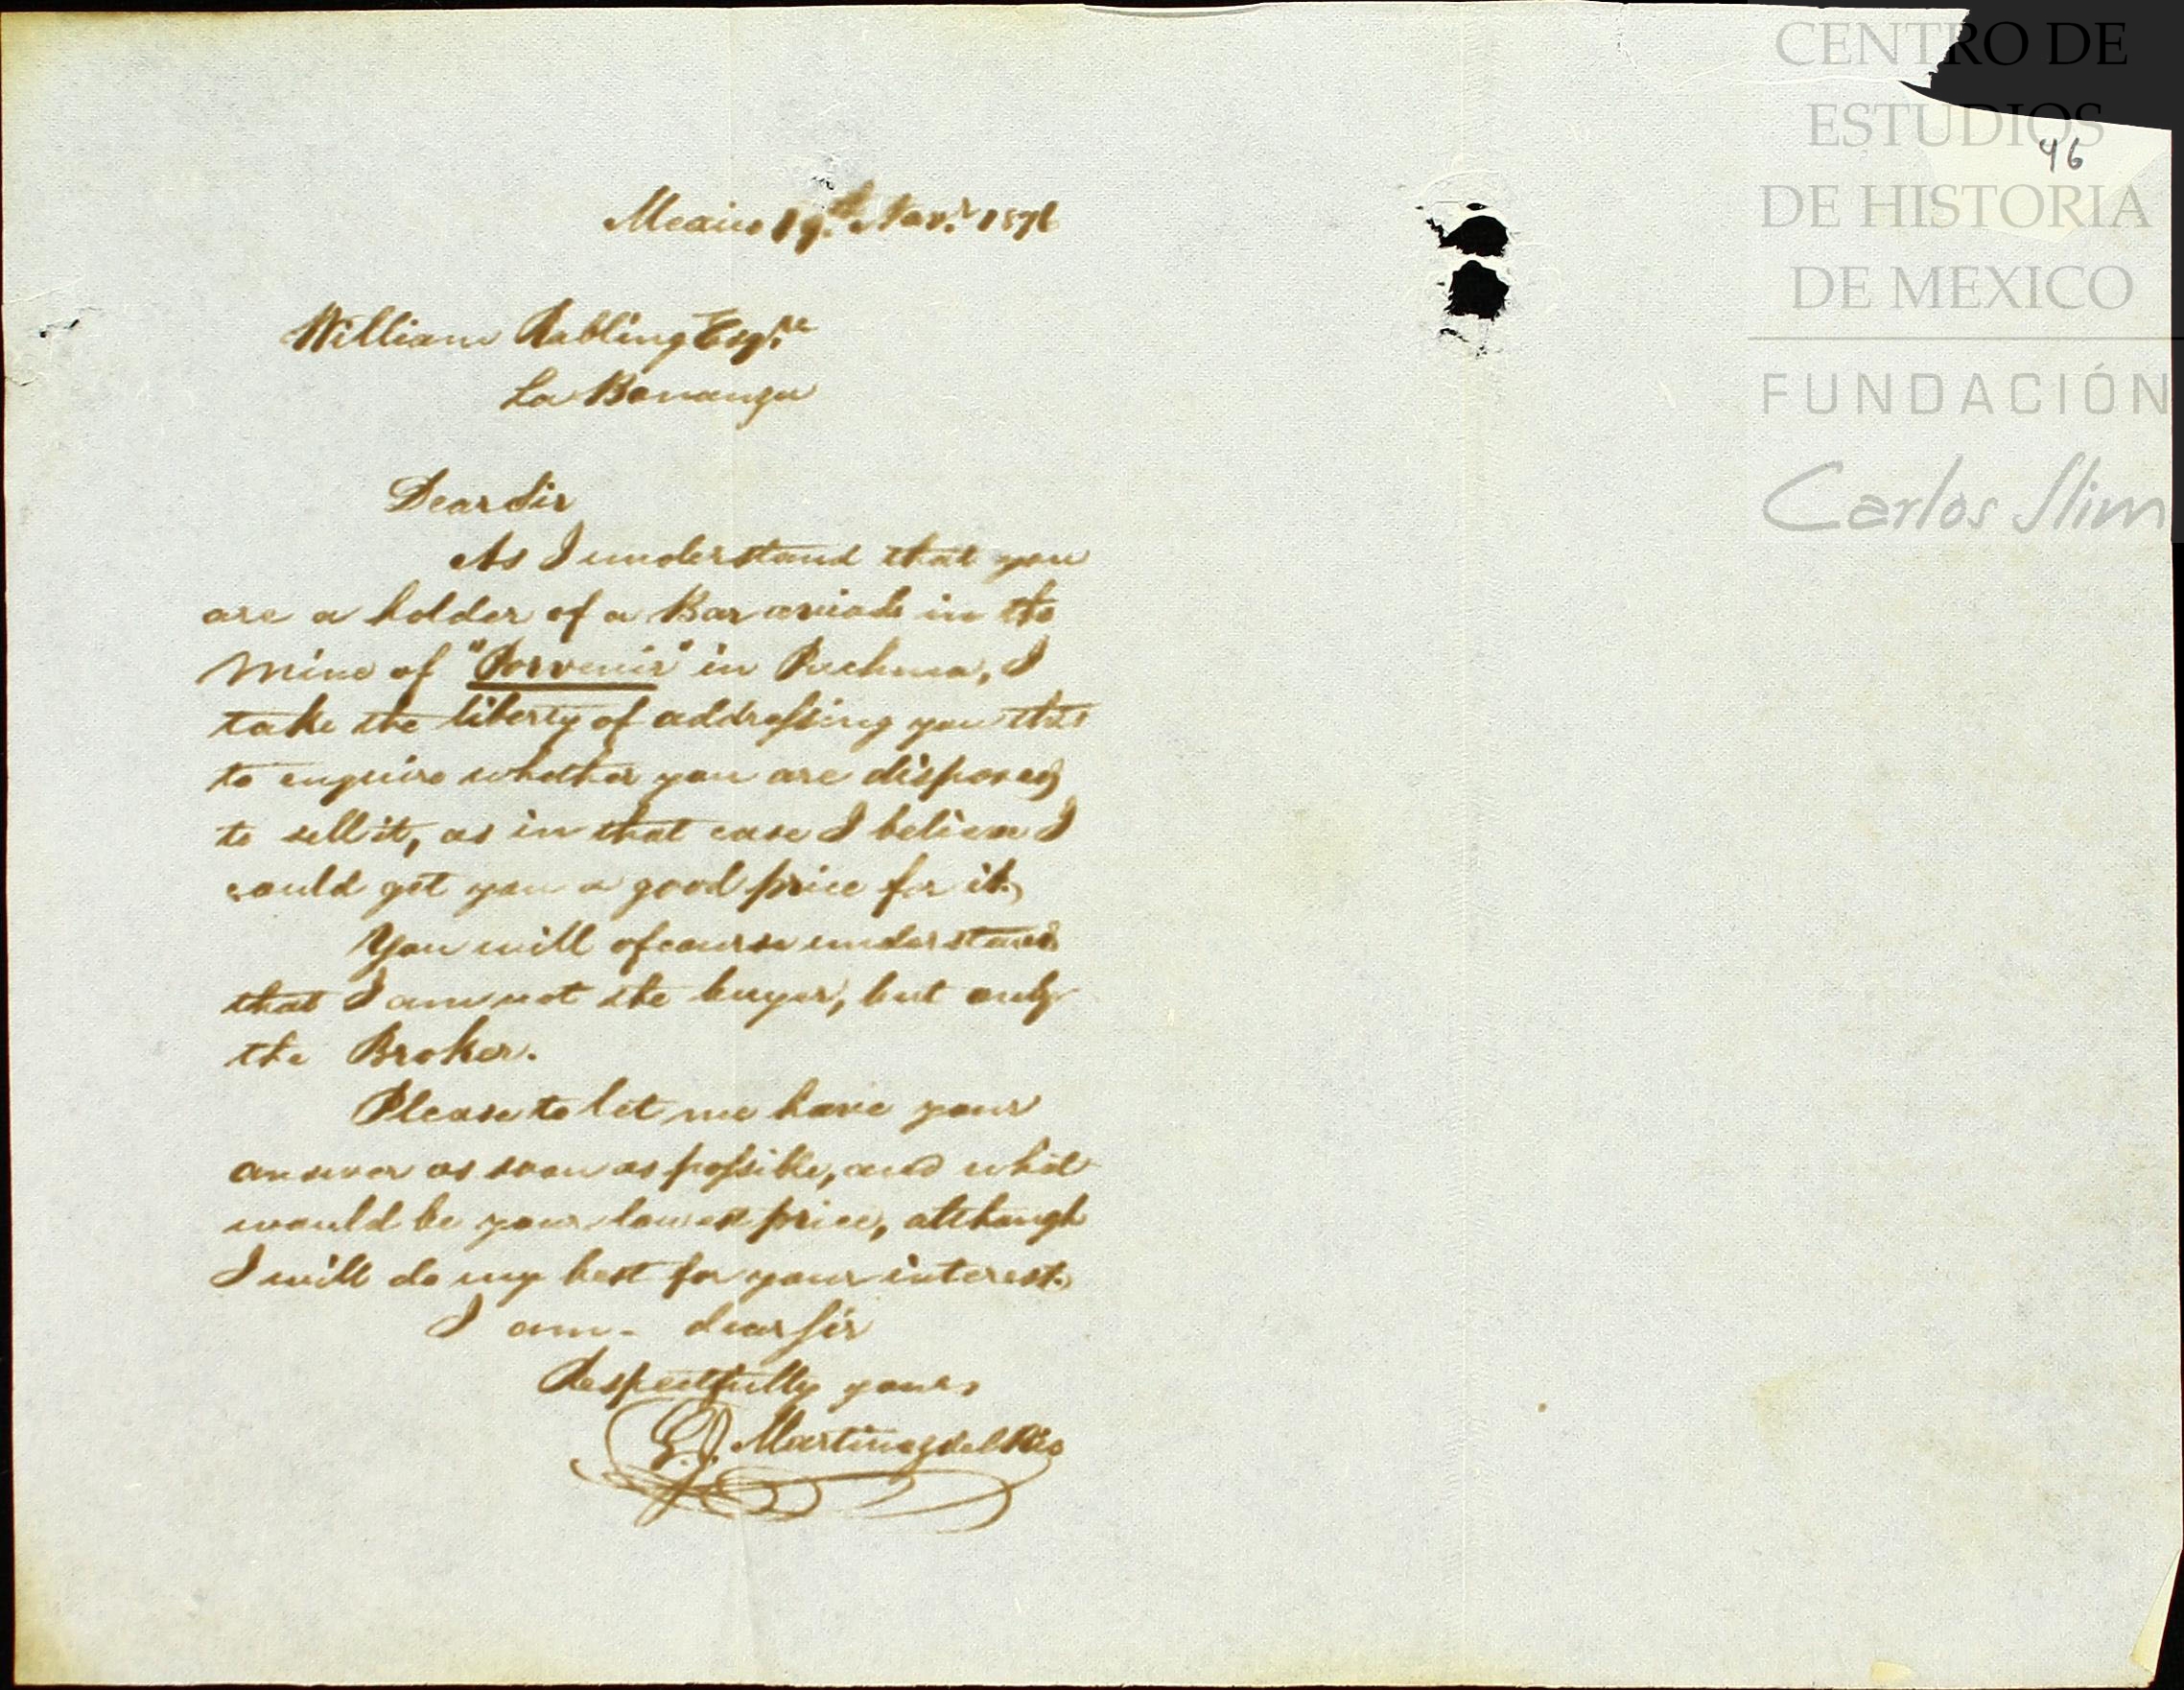 CENTRO DE
ESTUDIOS
DE HISTORIA
DE MEXICO
FUNDACIÓN
Carlos Slim
46
Mexico 19th Novr. 1876
William Rabling Esqre
La Bonanza
Dear Sir
As I understand that you
are a holder of a Bar aviada in the
Mine of "Porvenir" in Pachuca, I
take the liberty of addressing you this
to enquire whether you are disposed
to sell it, as in that case I believe I
could get you a good price for it.
You will of course understand
that I am not the buyer, but only
the Broker.
Please to let me have your
answer as soon as possible, and what
would be your lowest price, although
I will do my best for your interest.
I am - dear Sir
Respectfully yours
Martinez del Rio